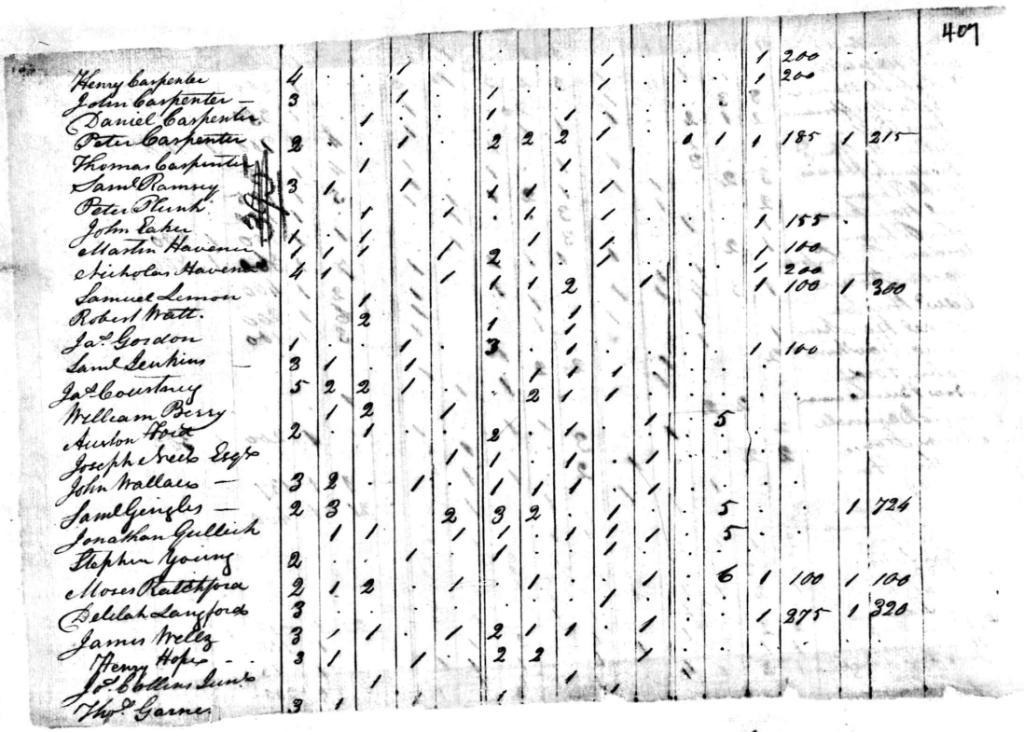 407
Henry Carpenter 4 . . 1 . . . . 1 . . . 1 200
John Carpenter — 3 . . 1 . 1 . . 1 . . . 1 200
Daniel Carpenter . . 1 . . 1 . 1
Peter Carpenter 2 . . 1 . 2 2 2 1 . 1 1 1 185 1 215
Thomas Carpenter . . 1 . . . . 1
Saml Ramsey 3 1 . 1 . 1 1 . 1
Peter Plunk . . 1 . 1 . 1 . 1 . . . 1 155
John Eaker 1 . 1 . . . . . 1
Martin Havener 1 1 1 . 1 2 . . 1 . . . 1 100
Nicholas Havener 4 1 . . 1 . . . . . . . 1 200
Samuel Lemon . . 1 . . 1 1 2 . 1 . . 1 100 1 300
Robert Watt . . 2 . . 1 . 1
Jas Gordon 1 . . 1 . 3 . 1 . . . . 1 100
Saml Jenkins 3 1 . 1 . . 1 1 1
Jas Courtney 5 2 2 1 . . 2 1 1
William Berry . 1 2 . 1 . . . . 1 . 5
2 . 1 . . 2 . 1
Joseph Esqr . . . . 1 1 . 1 . 1
John Wallace — 3 2 . 1 . 1 1 1 . 1
Saml Gingles — 2 3 . . 2 3 2 . 1 . . 5 . . 1 724
Jonathan Gullick . 1 1 . 1 1 . 1 1 1 . 5
Stephen Young 2 . . 1 . 1 . . 1
Moses Ratchford 2 1 2 . 1 . 1 . . 1 . 6 1 100 1 100
Delilah Langford 3 . . . . . . . 1
James Wells 3 1 1 . 1 2 1 1 . 1 . . 1 275 1 320
Henry Hope 3 1 . 1 . 2 2 . . 1
Jos. Collins Junr . . 1 . . . . 1
Thos Garner 3 1 . . 1 1 . . 1